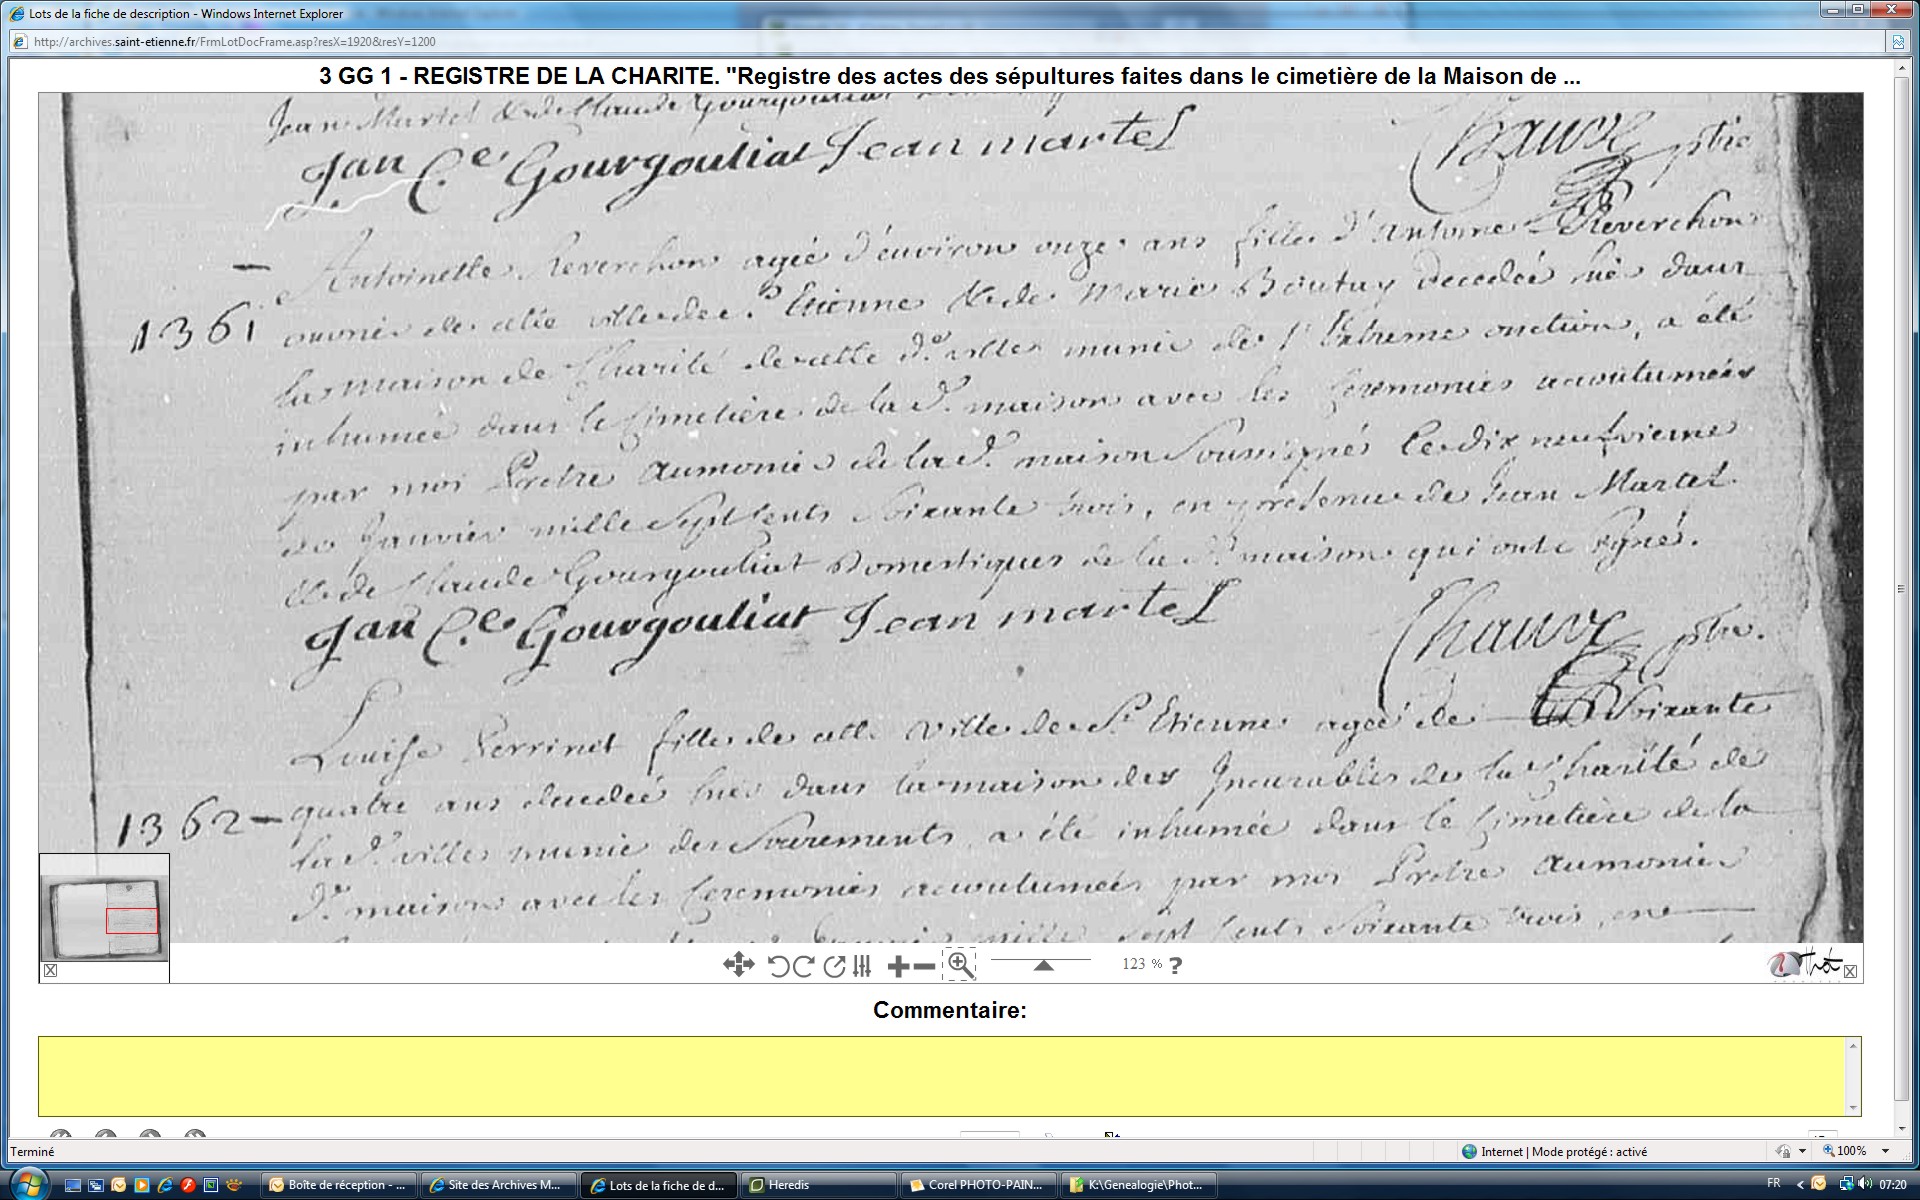 Lots de la fiche de description - Windows Internet Explorer
http://archives.saint-etienne.fr/FrmLotDocFrame.asp?resX=1920&resY=1200
3 GG 1 - REGISTRE DE LA CHARITE. "Registre des actes des sépultures faites dans le cimetière de la Maison de ...
Jean Martel & de Claude Gourgouliat
Jan C.e Gourgouliat Jean martel Chauve ptre
Antoinette Reverchon agée d'environ onze ans fille d'Antoine Reverchon
1361 de cette ville de St Etienne & de Marie Boutuy decedée hier dans
la maison de Charité de cette de ville munie de l'Extreme onction, a été
inhumée dans le Cimetière de la de maison avec les Ceremonies acoutumées
par moi Pretre Aumonier de la de maison Soussigné Le dix neufvieme
de Janvier mille Sept Cents Soixante trois, en presence de Jean Martel
& de Claude Gourgouliat Domestiques de la de maison qui ont signé.
Jan C.e Gourgouliat Jean martel Chauve ptre.
Louise Perrinet fille de cette ville de St Etienne agée de Soixante
1362 - quatre ans decedée hier dans la maison des Incurables de la Charité de
la de ville munie des Sacrements a été inhumée dans le Cimetière de la
de maison avec les Ceremonies acoutumées par moi Pretre Aumonier
mille Sept Cents Soixante trois, en
123 % ?
Commentaire:
Terminé
Internet | Mode protégé : activé
100%
Boîte de réception - ...
Site des Archives M...
Lots de la fiche de d...
Heredis
Corel PHOTO-PAIN...
K:\Genealogie\Phot...
FR
07:20